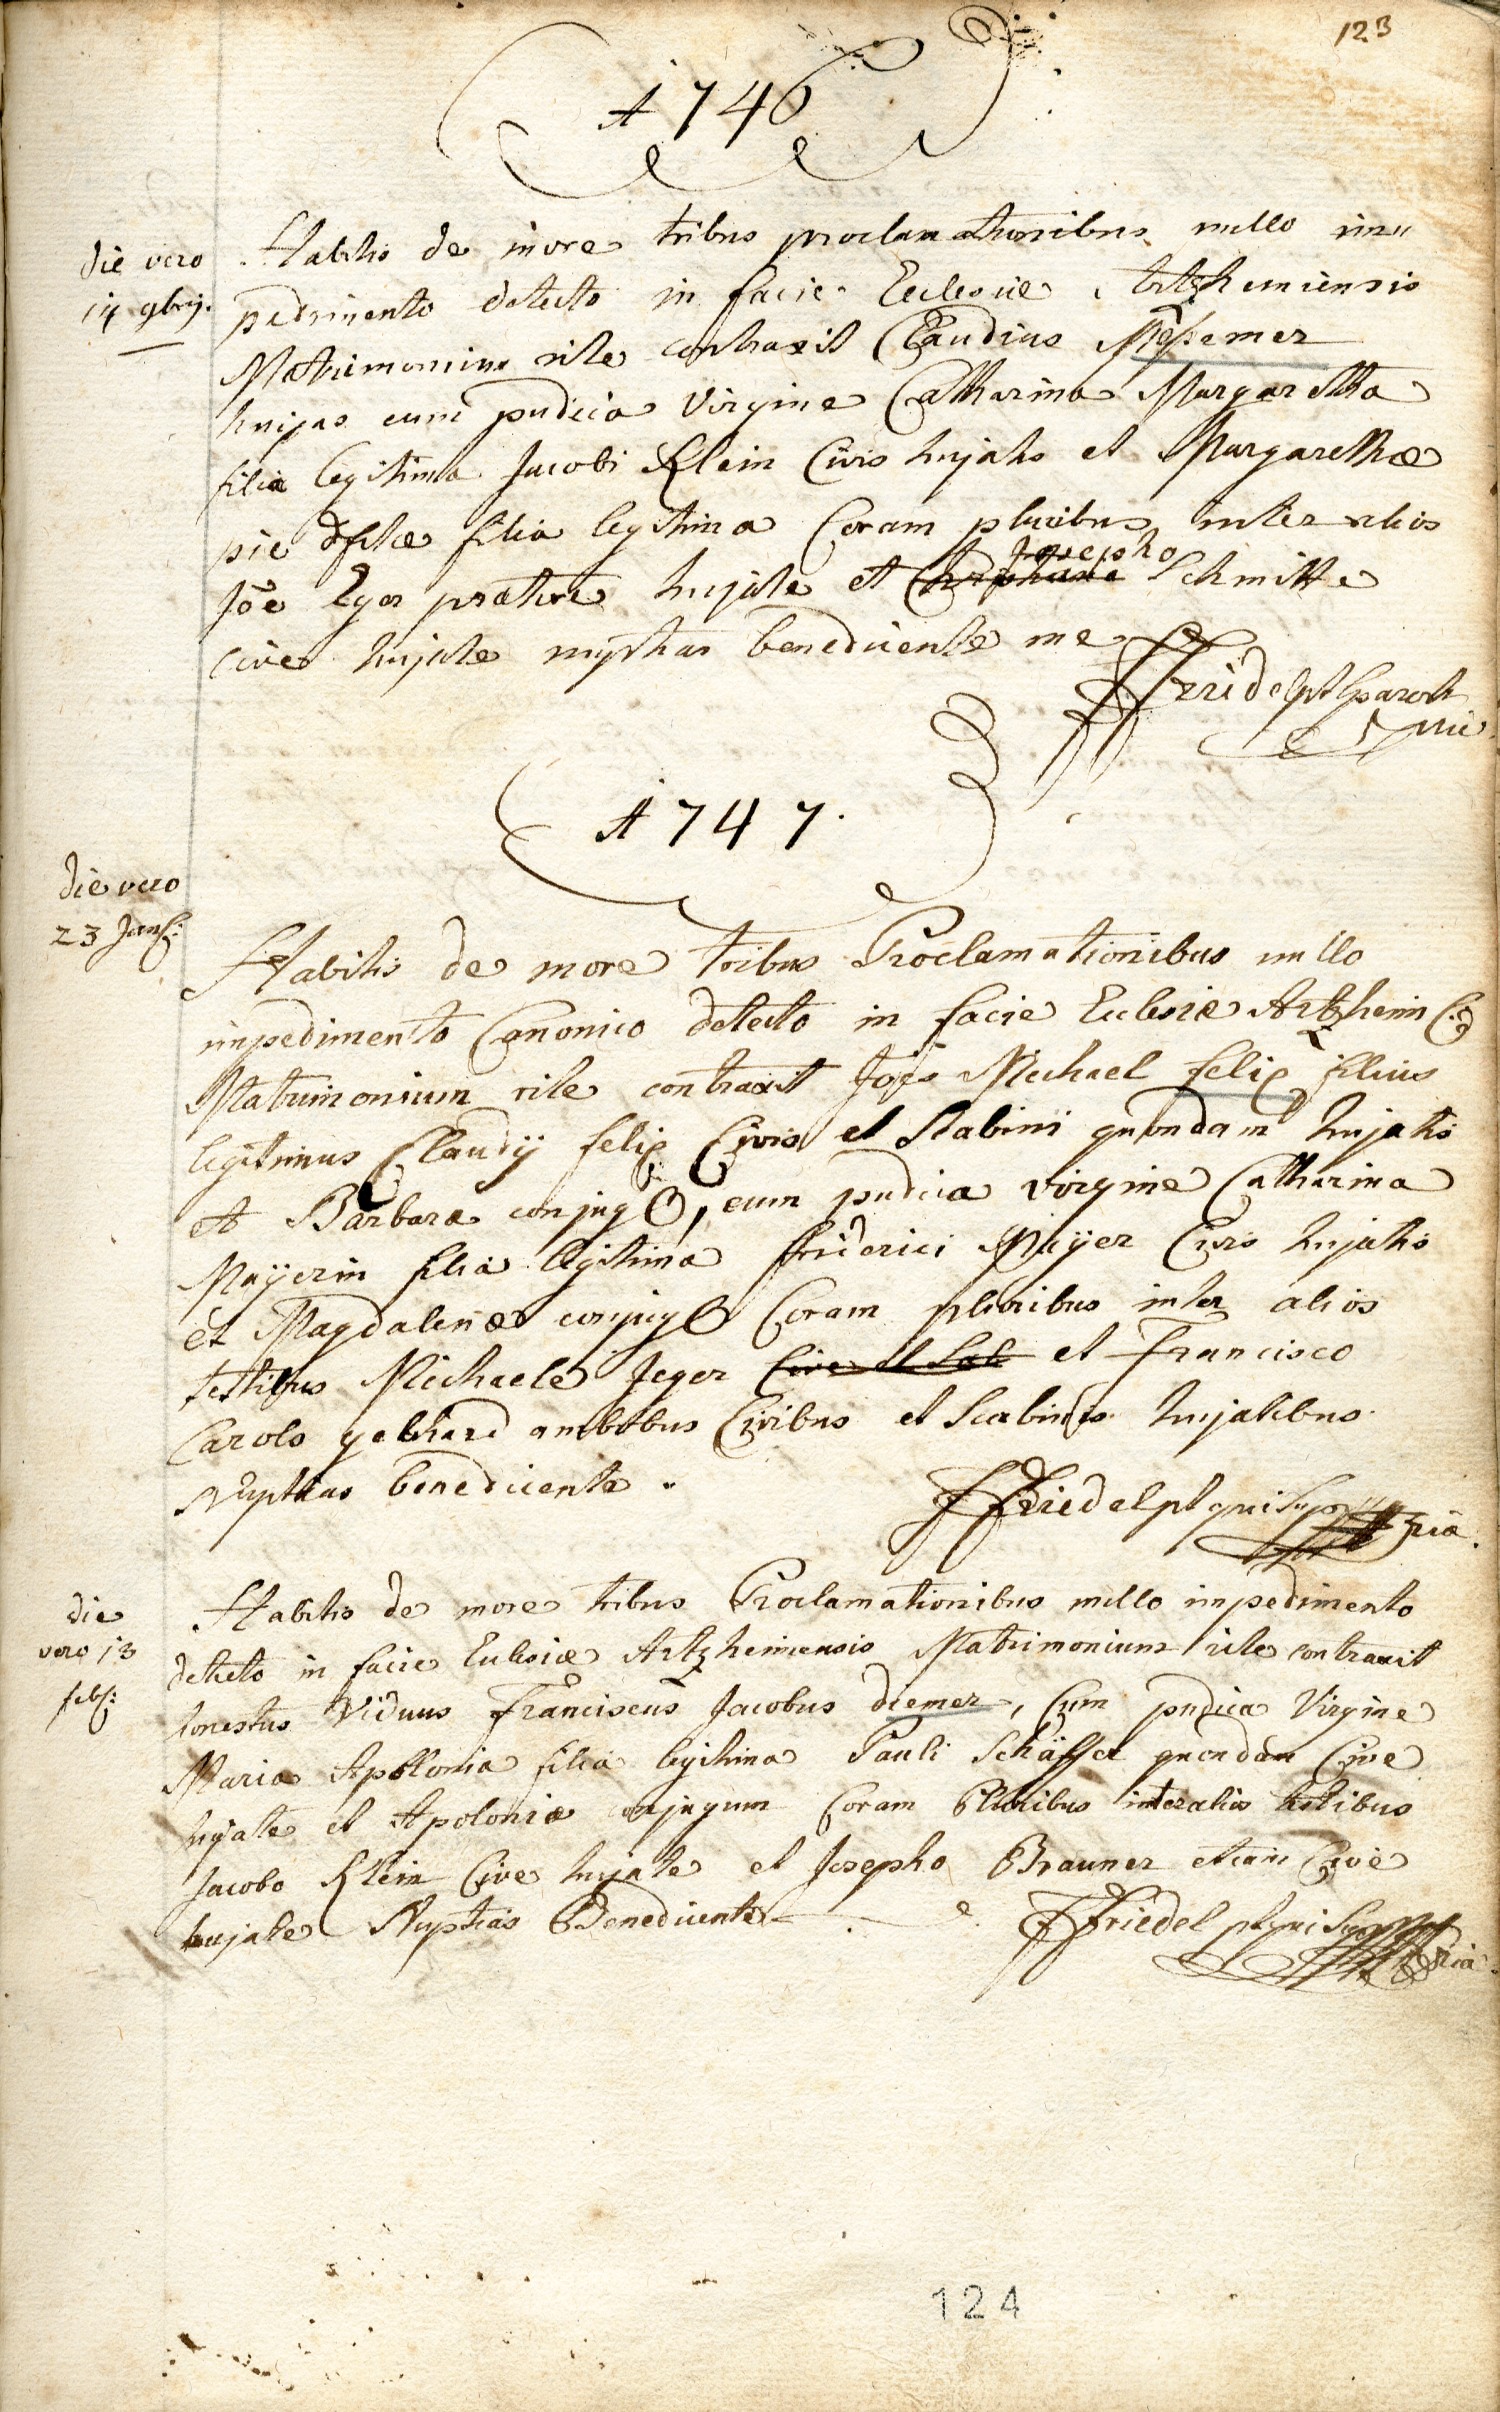 123
A 1746
die vero
14 9bris.
Habitis de more tribus proclamationibus nullo im,,
pedimento detecto in facie Ecclesiæ Artzhemiensis
Matrimonium rite contraxit Claudius
hujas cum pudica Virgine Catharina Margaretha
filia legitima Jacobi Klein Civis hujatis et Margarethæ
pie dftæ filia legitima Coram pluribus inter alios
Joê Eger prætore hujate et Josepho Schmitte
cive hujate nuptias benedicente me
FFridelpt paroch
mie
A 1747.
die vero
23 Jan:
Habitis de more tribus Proclamationibus nullo
impedimento Canonico detecto in facie Ecclesiæ Artzheim
Matrimonium rite contraxit Joês Michael felix filius
legitimus Claudij felix Civis et Scabini quondam hujatis
et Barbaræ conjug, cum pudica virgine Catharina
Mayerin filia legitima friderici Mayer Civis hujatis
et Magdalenæ conjug Coram pluribus inter alios
testibus Michaele Jeger Cive et Scab et Francisco
Carolo gebhard ambobus Civibus et Scabinis hujatibus
Nuptias benedicente.
FFriedelpt qui Supra
die
vero 13
feb:
Habitis de more tribus Proclamationibus nullo impedimento
detecto in facie Eclesiæ Artzheimensis Matrimonium rite contraxit
honestus Viduus Franciscus Jacobus diemer, Cum pudica Virgine
Maria Apollonia filia legitima Pauli Schäffer quondam Cive
hujate et Apoloniæ conjugum Coram Pluribus inter alios testibus
Jacobo Klein Cive hujate et Josepho Brauner etiam Cive
hujate Nuptias Benedicente
FFriedelpt qui Supra
124